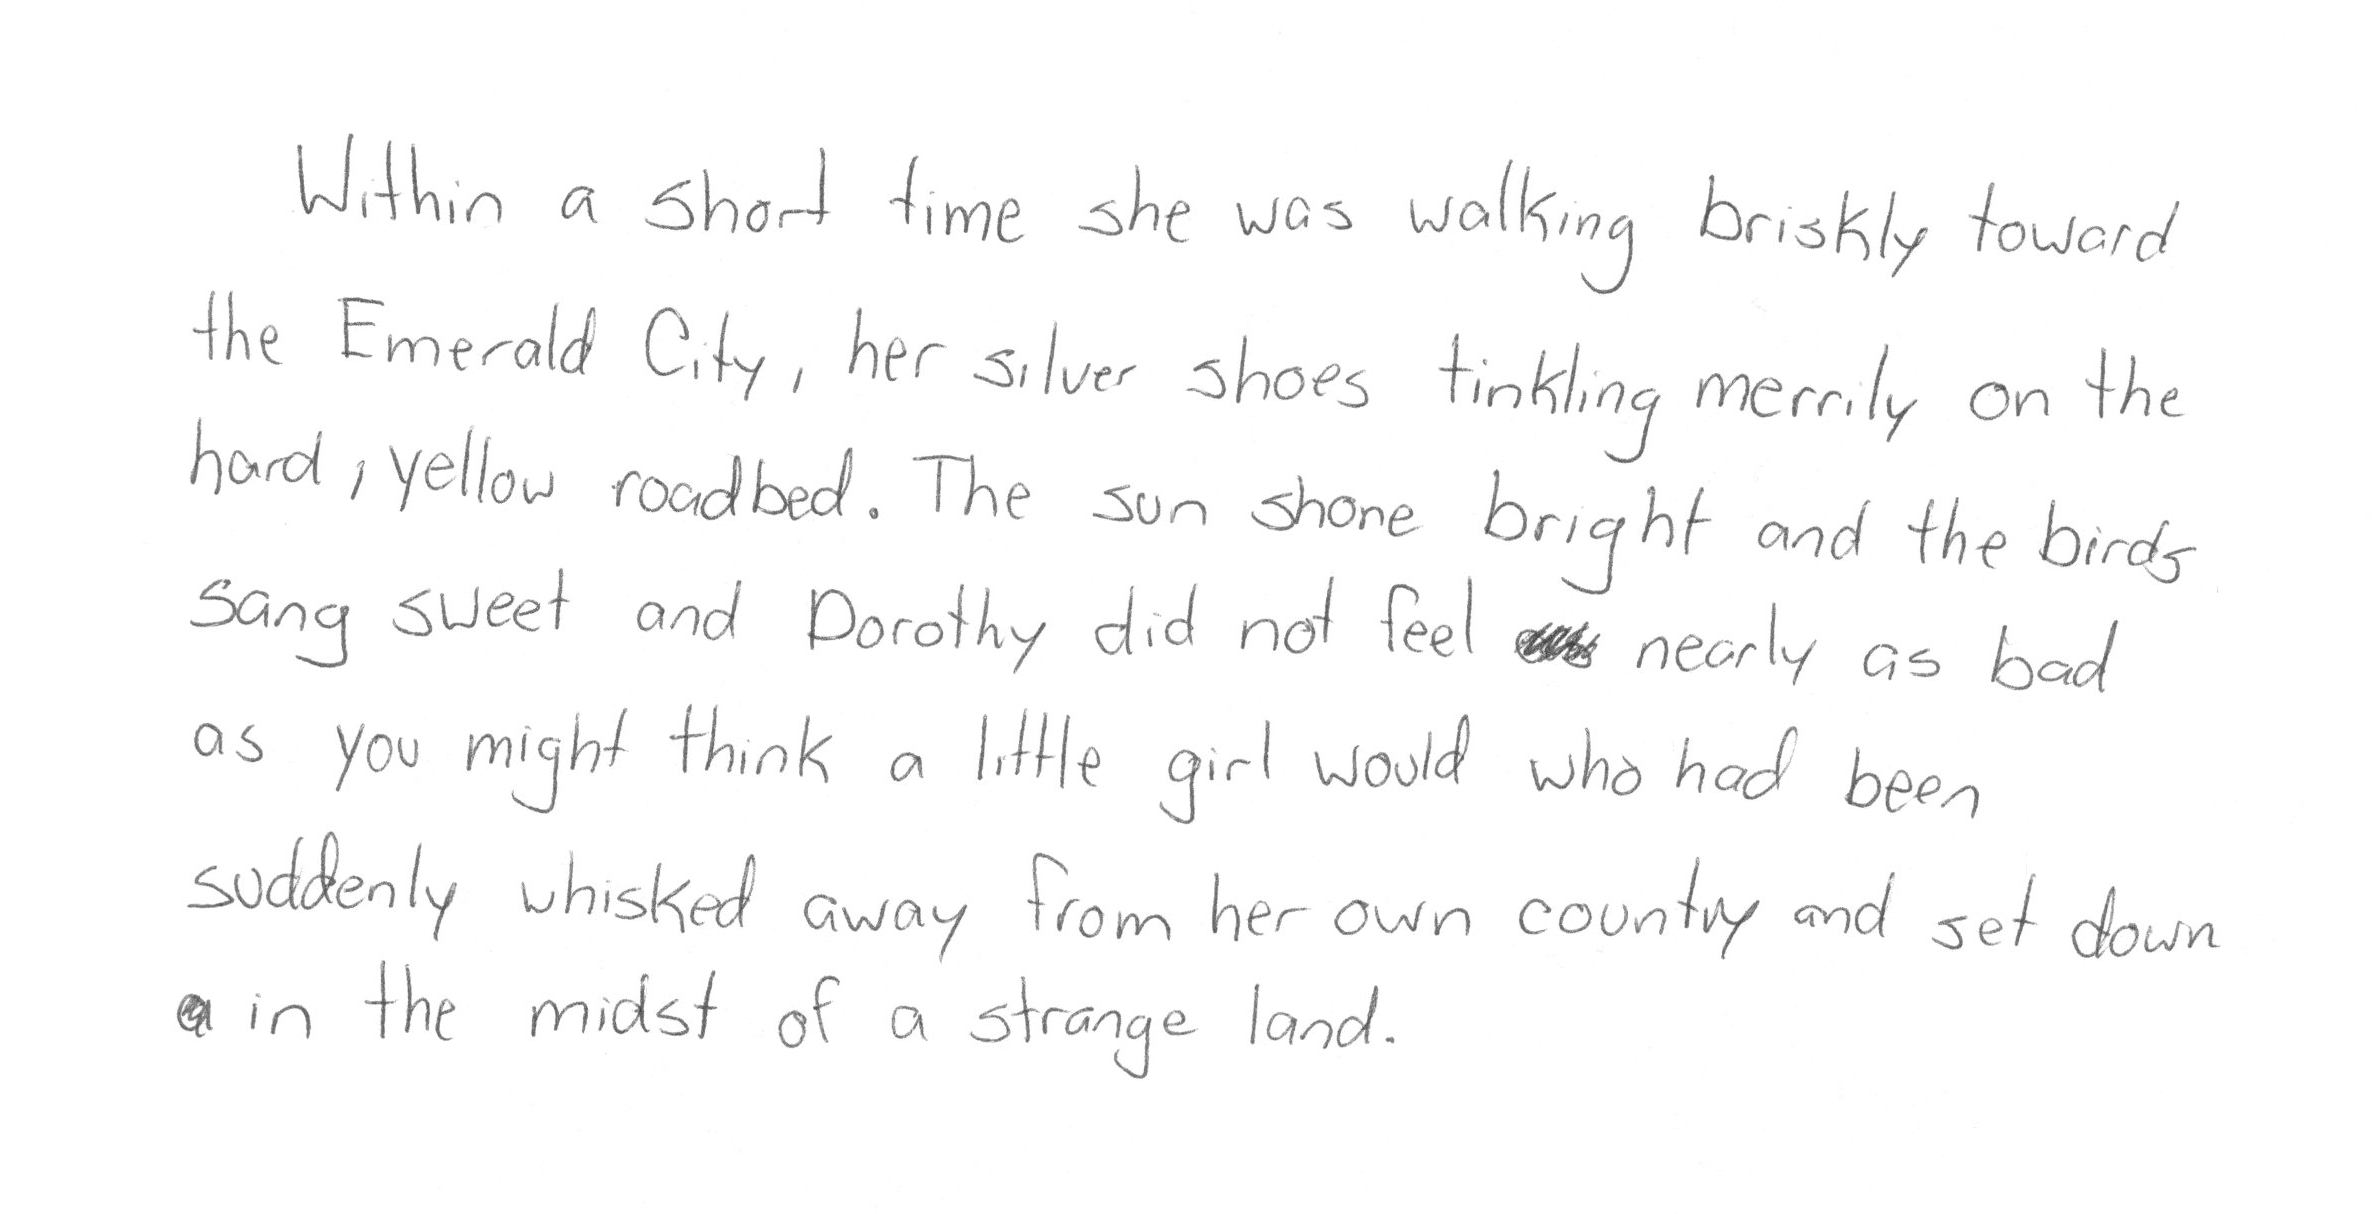 Within a short time she was walking briskly toward
the Emerald City, her silver shoes tinkling merrily on the
hard, yellow roadbed. The sun shone bright and the birds
sang sweet and Dorothy did not feel nearly as bad
as you might think a little girl would who had been
suddenly whisked away from her own country and set down
in the midst of a strange land.